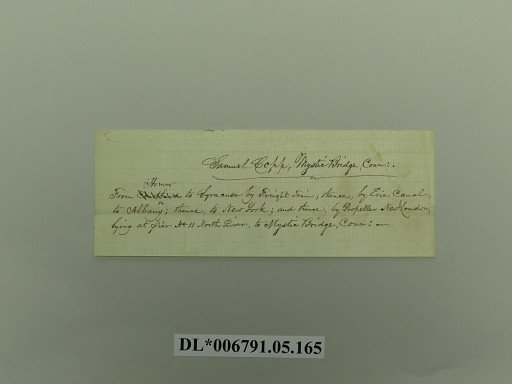 Samuel Copp, Mystic Bridge, Conn:.
Homer
From to Syracuse by Freight Train; thence, by Erie Canal,
to Albany; thence, to New York; and thence, by Propeller New London,
lying at Pier No 11 North River, to Mystic Bridge, Conn:—
DL*006791.05.165